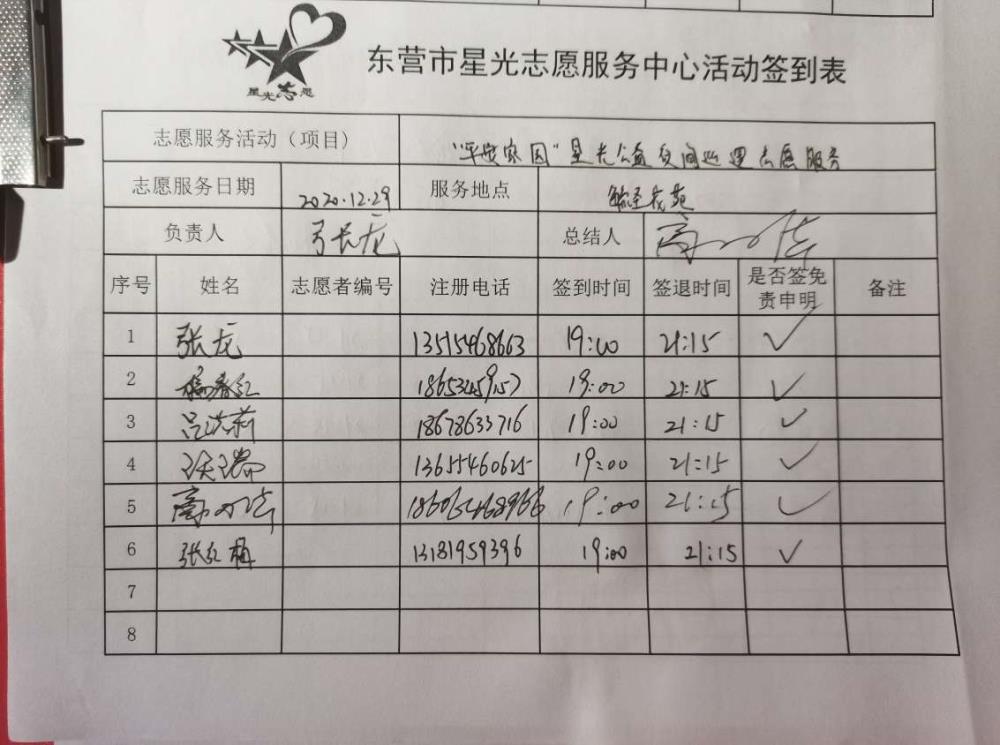 星光志愿
东营市星光志愿服务中心活动签到表
志愿服务活动（项目） "平安家园"星光公益夜间巡逻志愿服务
志愿服务日期 2020.12.29 服务地点 花苑
负责人 张龙 总结人 高
序号 姓名 志愿者编号 注册电话 签到时间 签退时间 是否签免责申明 备注
1 张龙 13515468663 19:00 21:15 ✓
2 18653459157 19:00 21:15 ✓
3 吕洪莉 18678633716 19:00 21:15 ✓
4 13655460625 19:00 21:15 ✓
5 高 19:00 21:15 ✓
6 张红梅 13181959396 19:00 21:15 ✓
7
8